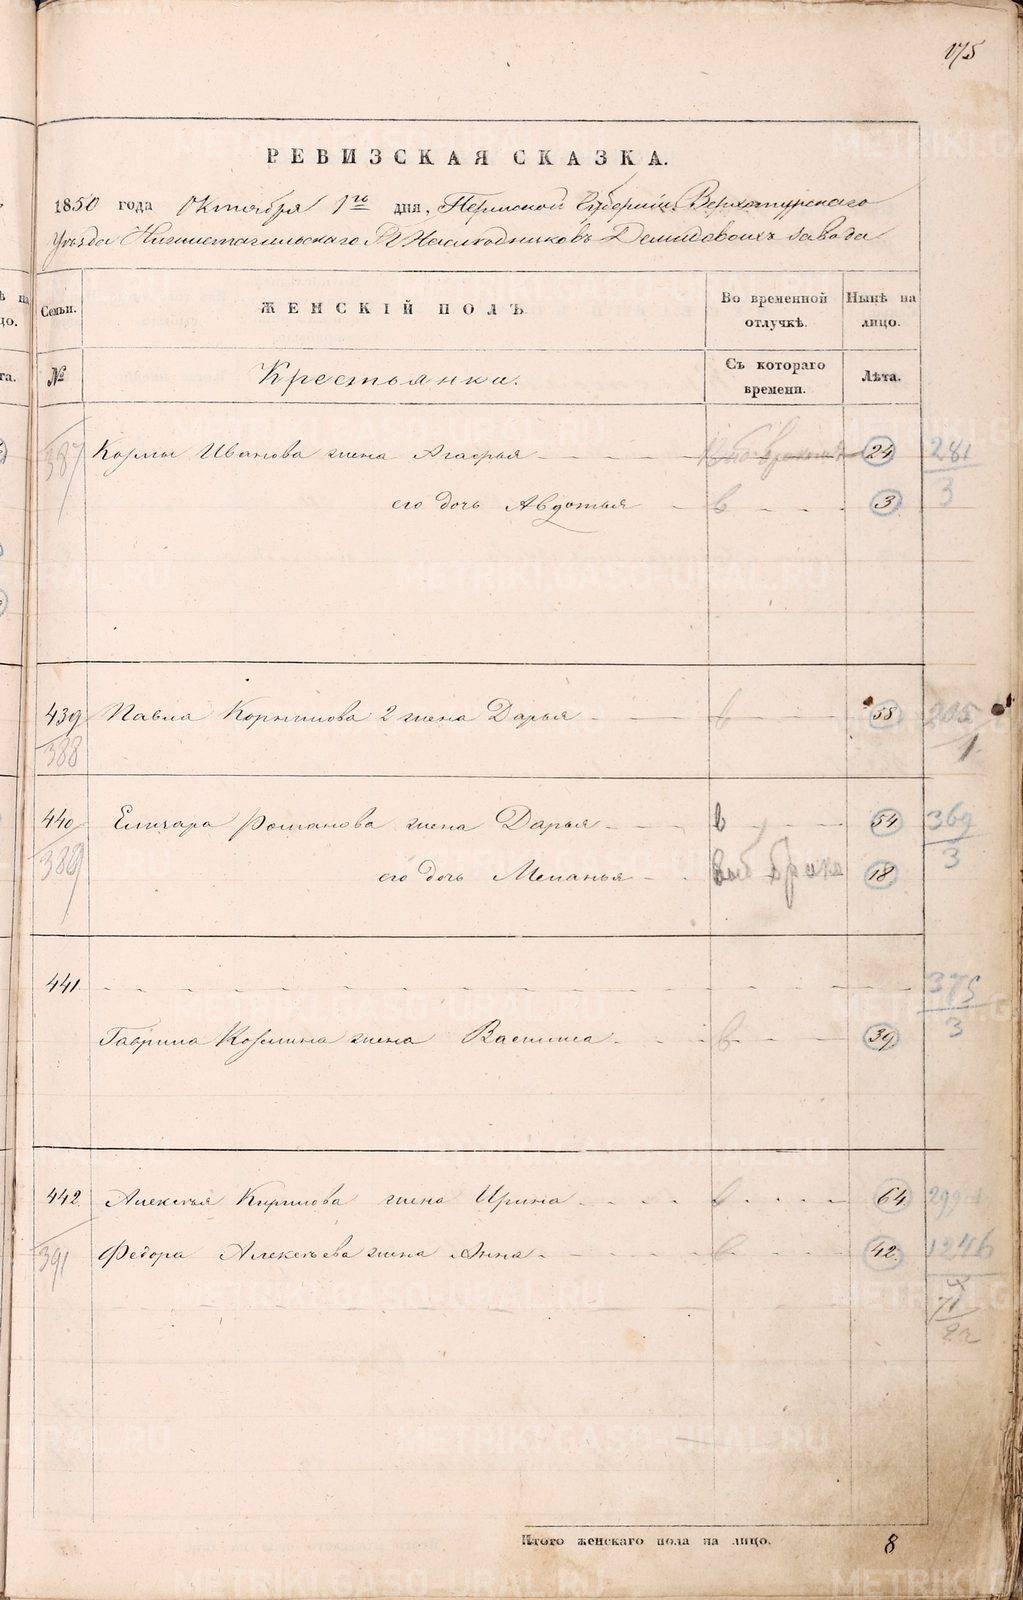 175
РЕВИЗСКАЯ СКАЗКА.
1850 года Октября 1го дня, Пермской Губернии Верхотурскаго
Уѣзда Нижнетагильскаго Наслѣдниковъ Демидовыхъ завода
Семьи. ЖЕНСКІЙ ПОЛЪ Во временной отлучкѣ. Нынѣ на лицо.
№ Крестьянка. Съ котораго времени. Лѣта.
387 Козмы Иванова жена Агафья 24 281
его дочь Авдотья в 3 3
439 Павла Корнилова 2 жена Дарья в 58 205
388 1
440 Елизара Романова жена Дарья в 54 369
389 его дочь Меланья 18 3
441 375
Гаврила Козмина жена Василиса в 39 3
442 Алексѣя Кирилова жена Ирина в 64
391 Федора Алексѣева жена Анна в 42 1246
71
Итого женскаго пола на лицо. 8
METRIKI.GASO-URAL.RU